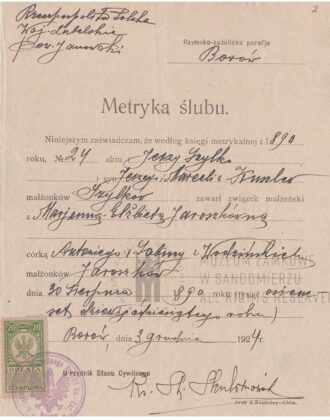 2
Rzeczpospolita Polska
Woj. Lubelskie
Pow. Janowski
Rzymsko-katolicka parafja
Borów
Metryka ślubu.
Niniejszem zaświadczam, że według księgi metrykalnej z 1890
roku, № 24 aktu Jerzy Szylko
syn Jerzego i
małżonków Szylków zawarł związek małżeński
z Marjanną-Elżbietą Jaroszkówną
córką Antoniego i Sabiny z Wodzińskich
małżonków Jaroszków
dnia 30 Sierpnia 890 roku (tysiąc osiem-
set dziewięćdziesiątego roku)
Borów dnia 3 grudnia 1924 r.
Urzędnik Stanu Cywilnego
Ks. St.
20 20
OPŁATA
STEMPLOWA
W SANDOMIERZU
ALL RIGHTS RESERVED
Druk A. Nasalskiego—Lublin.